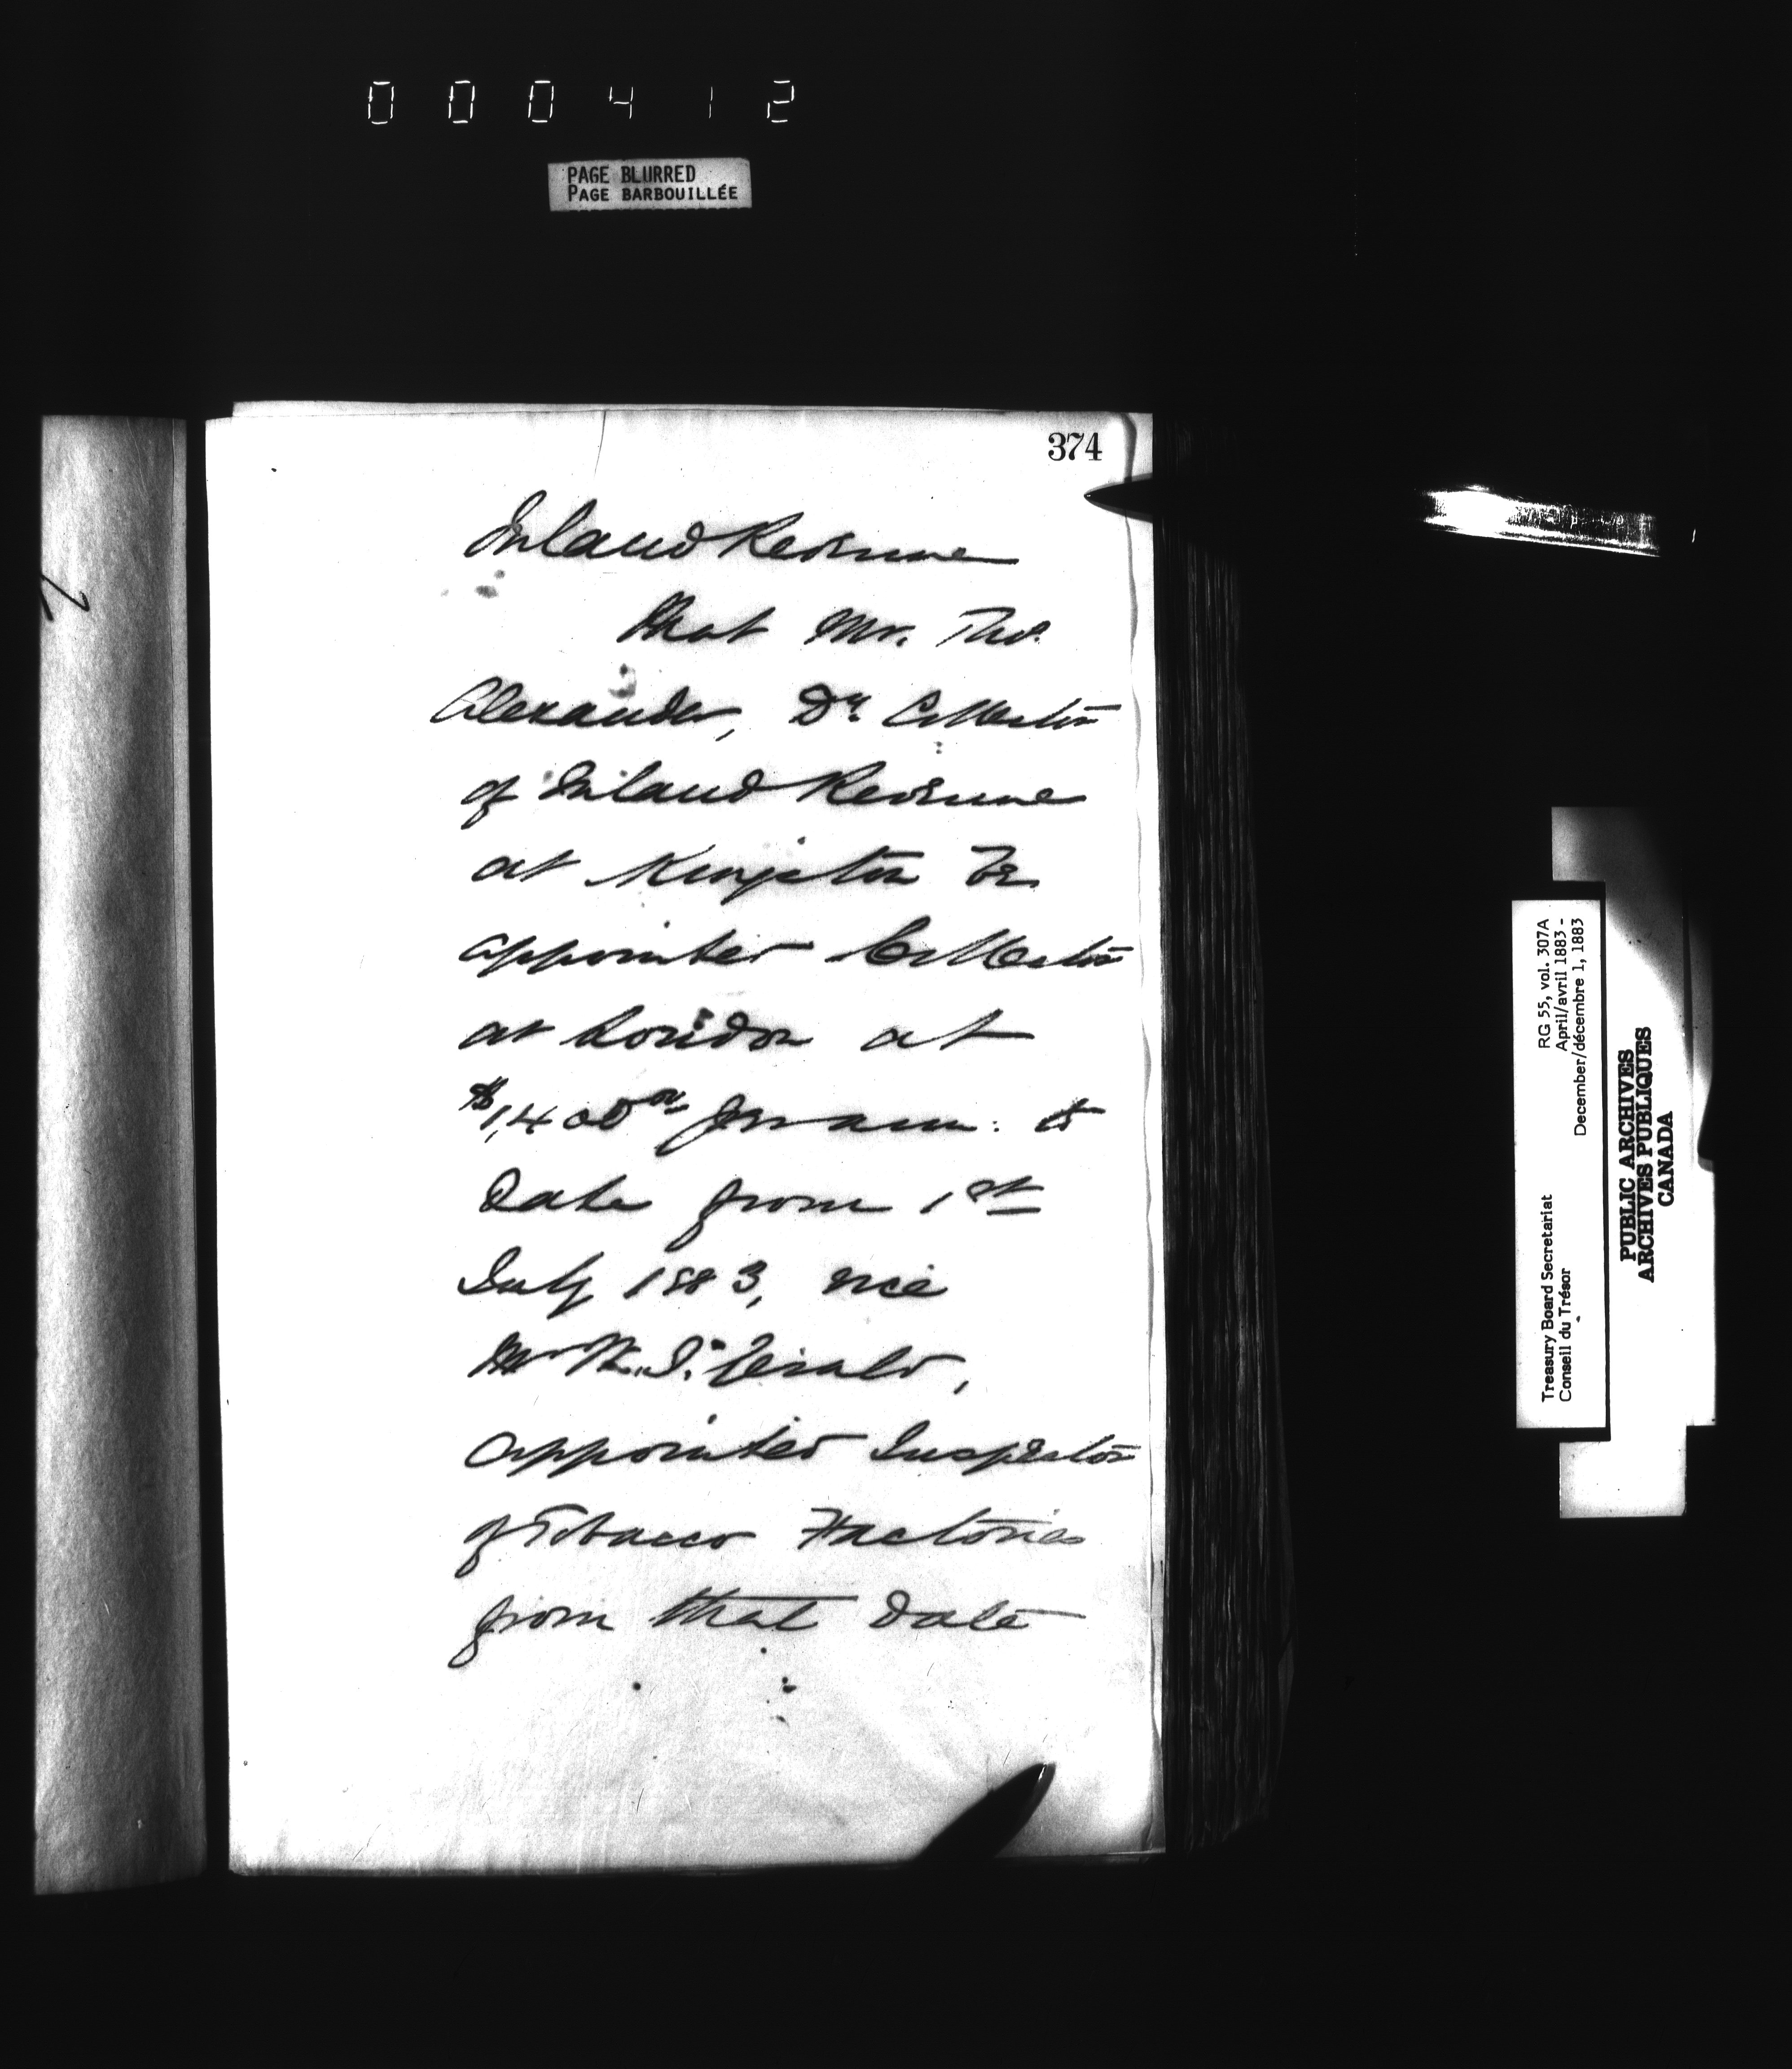 000412
PAGE BLURRED
PAGE BARBOUILLÉE
374
Inland Revenue
that Mr. Tho.
Alexander, Dy. Collector
of Inland Revenue
at Kingston be
appointed Collector
at London at
$1,400 00 per ann. to
Date from 1st
July 1883, vice
Mr
appointed Inspector
of Tobacco Factories
from that date
Treasury Board Secretariat RG 55, vol. 307A
Conseil du Trésor April/avril 1883 -
December/décembre 1, 1883
PUBLIC ARCHIVES
ARCHIVES PUBLIQUES
CANADA